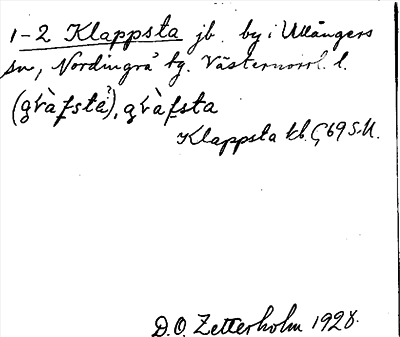 1-2 Klappsta jb. by i Ullångers
sn, Nordingrå tg. Västernorrl. l.
Klappsta kb. G 69 S.U.
D.O. Zetterholm 1928.